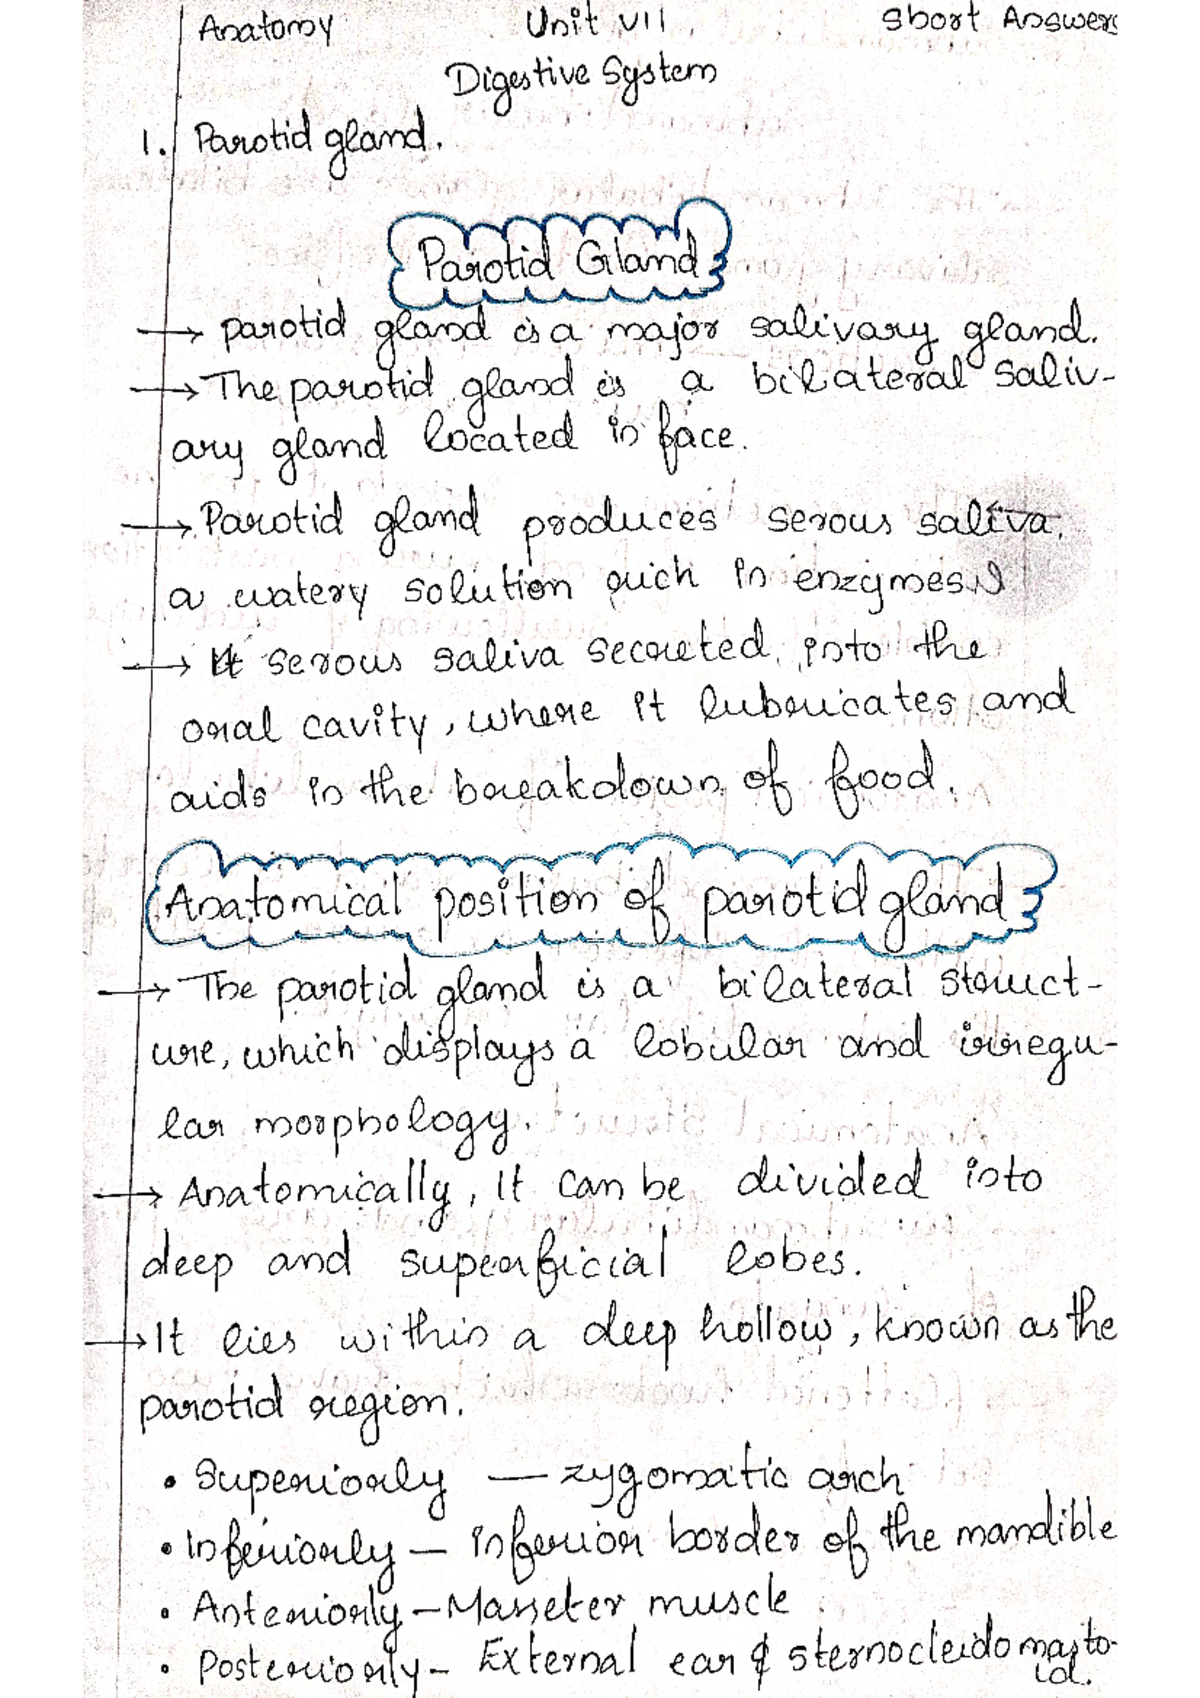 Anatomy Unit VII Short Answers
Digestive System
1. Parotid gland.
Parotid Gland
→ parotid gland is a major salivary gland.
→ The parotid gland is a bilateral saliv-
ary gland located in face.
→ Parotid gland produces serous saliva,
a watery solution rich in enzymes.
→ It serous saliva secreted into the
oral cavity, where it lubricates and
aids in the breakdown of food.
Anatomical position of parotid gland
→ The parotid gland is a bilateral struct-
ure, which displays a lobular and irregu-
lar morphology.
→ Anatomically, It can be divided into
deep and superficial lobes.
→ It lies within a deep hollow, known as the
parotid region.
• Superiorly — zygomatic arch
• Inferiorly — inferior border of the mandible
• Anteriorly — Masseter muscle
• Posteriorly - External ear & sternocleidomasto-